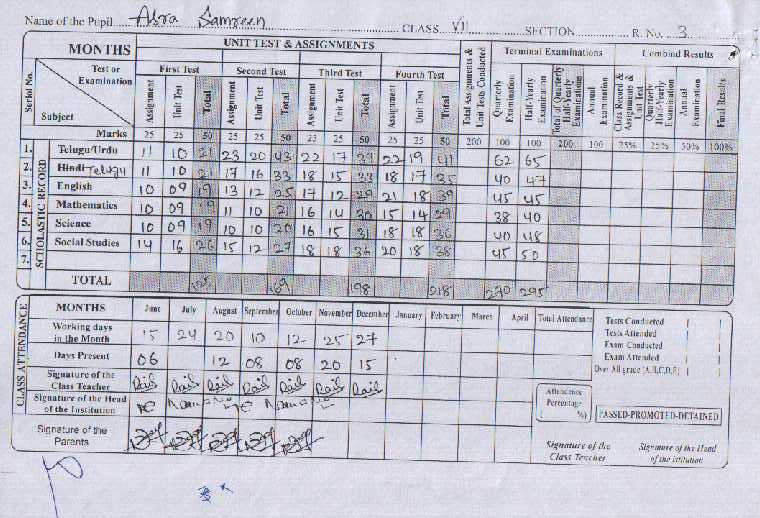 Name of the Pupil Abra Samreen CLASS VII SECTION R. No. 3
MONTHS UNIT TEST & ASSIGNMENTS Total Assignments & Unit Tests Conducted Terminal Examinations Combind Results
Serial No. Test or Examination Subject First Test Second Test Third Test Fourth Test
Assignment Unit Test Total Assignment Unit Test Total Assignment Unit Test Total Assignment Unit Test Total Quarterly Examination Half-Yearly Examination Total Quarterly Half-Yearly Examinations Annual Examination Class Record & Assignments & Unit Test Quarterly Half-Yearly Examination Annual Examination Final Results
Marks 25 25 50 25 25 50 25 25 50 25 25 50 200 100 100 200 100 25% 25% 50% 100%
SCHOLASTIC RECORD
1. Telugu/Urdu 11 10 21 23 20 43 22 17 39 22 19 41 62 65
2. Hindi Telugu 11 10 21 17 16 33 18 15 33 18 17 35 40 47
3. English 10 09 19 13 12 25 17 12 29 21 18 39 45 45
4. Mathematics 10 09 19 11 10 21 16 14 30 15 14 29 38 40
5. Science 10 09 19 10 10 20 16 15 31 18 18 36 40 48
6. Social Studies 14 16 15 12 27 18 18 36 20 18 38 45 50
7.
TOTAL 125 169 198 218 270 295
CLASS ATTENDANCE
MONTHS June July August September October November December January February March April Total Attendance
Working days in the Month 15 24 20 10 12 25 27
Days Present 06 12 08 08 20 15
Signature of the Class Teacher
Signature of the Head of the Institution
Signature of the Parents
Tests Conducted
Tests Attended
Exam Conducted
Exam Attended
Over All grade (A,B,C,D,E)
Attendance Percentage %)
PASSED-PROMOTED-DETAINED
Signature of the Class Teacher
Signature of the Head of the Istitution